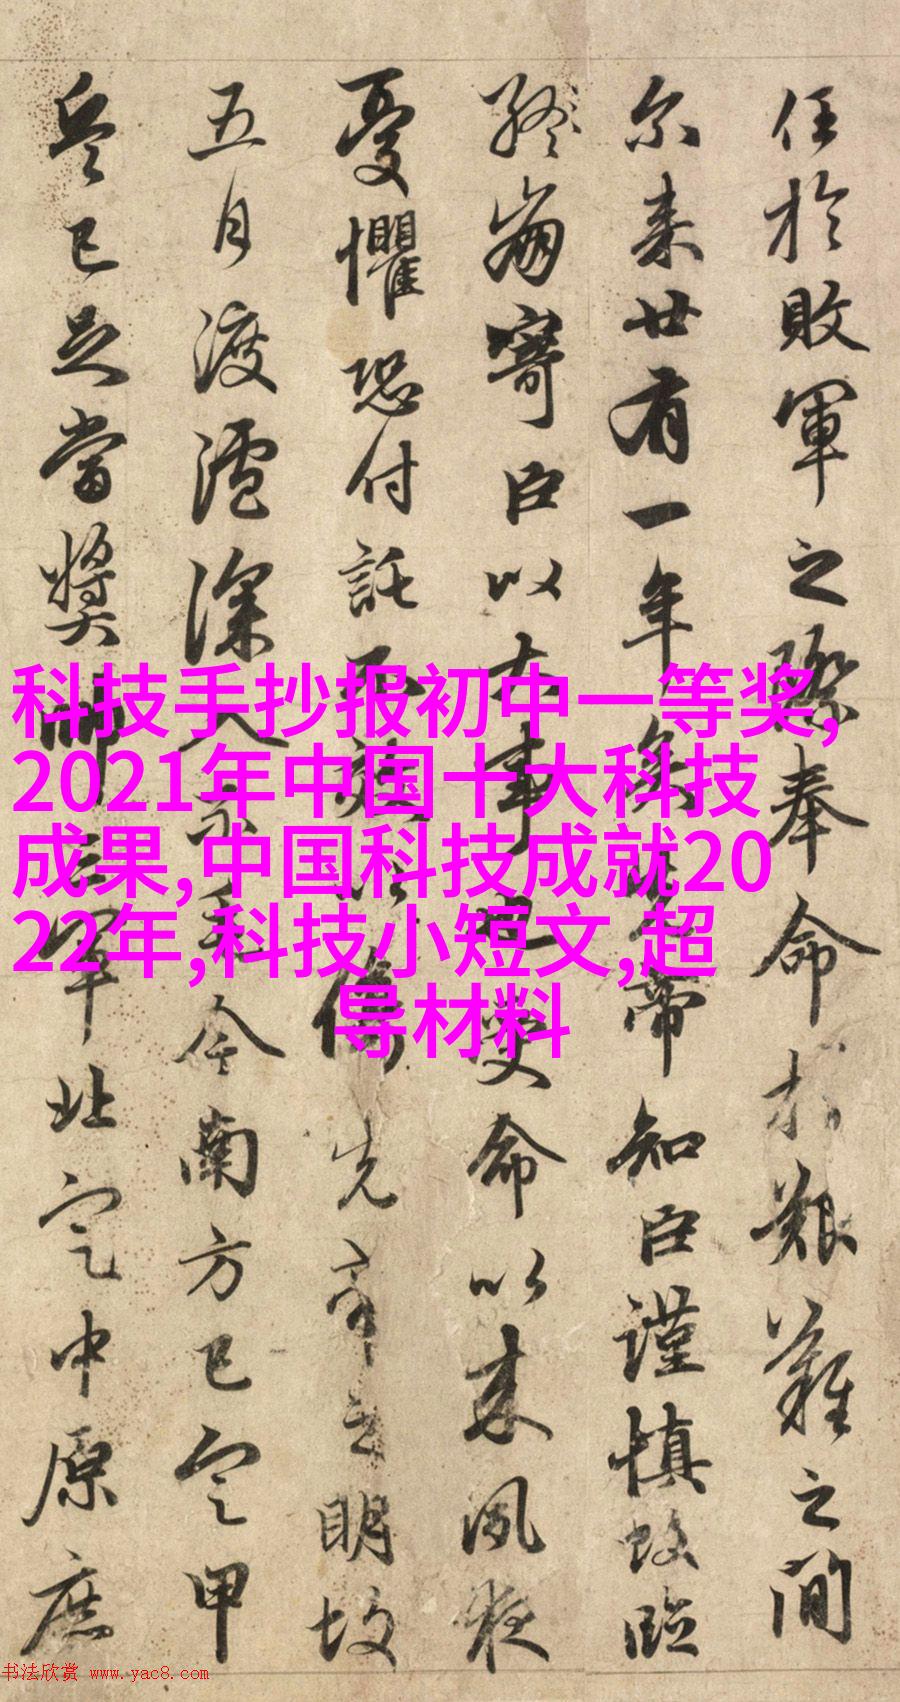 任於敗軍之際奉命於艱難之間
尔来廿有一年矣先帝知臣謹慎故臨
终崩寄臣以大事也受命以来夙夜
憂懼恐付託不效以傷先帝之明故
五月渡瀘深入不毛今南方已定甲
兵已足當獎帥三軍北定中原庶
科技手抄报初中一等奖,
2021年中国十大科技
成果,中国科技成就20
22年,科技小短文,超
导材料
书法欣赏 www.yac8.com